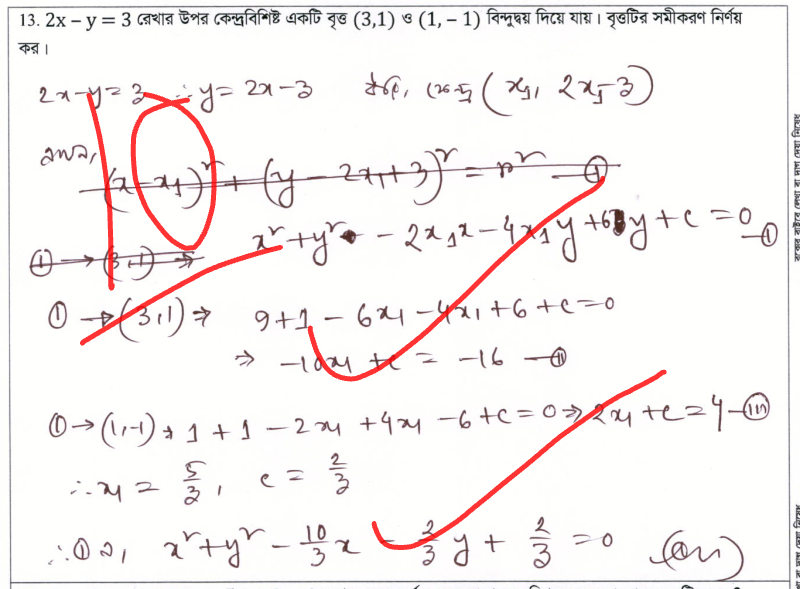 13. 2x – y = 3 রেখার উপর কেন্দ্রবিশিষ্ট একটি বৃত্ত (3,1) ও (1, – 1) বিন্দুদ্বয় দিয়ে যায়। বৃত্তটির সমীকরণ নির্ণয়
কর।
2x-y=3 ∴ y = 2x-3 ধরি, কেন্দ্র (x₁, 2x₁-3)
(x-x₁)² + (y-2x₁+3)² = r² —①
x²+y² - 2x₁x - 4x₁y + 6y + c = 0 —①
① → (3,1) ⇒
① → (3,1) ⇒ 9+1 - 6x₁ - 4x₁ + 6 + c = 0
⇒ -10x₁ + c = -16 —⑪
① → (1,-1) ⇒ 1 + 1 - 2x₁ + 4x₁ - 6 + c = 0 ⇒ 2x₁ + c = 4 —(iii)
∴ x₁ = 5/3, c = 2/3
∴ ① এ, x²+y² - 10/3 x - 2/3 y + 2/3 = 0 (Ans)